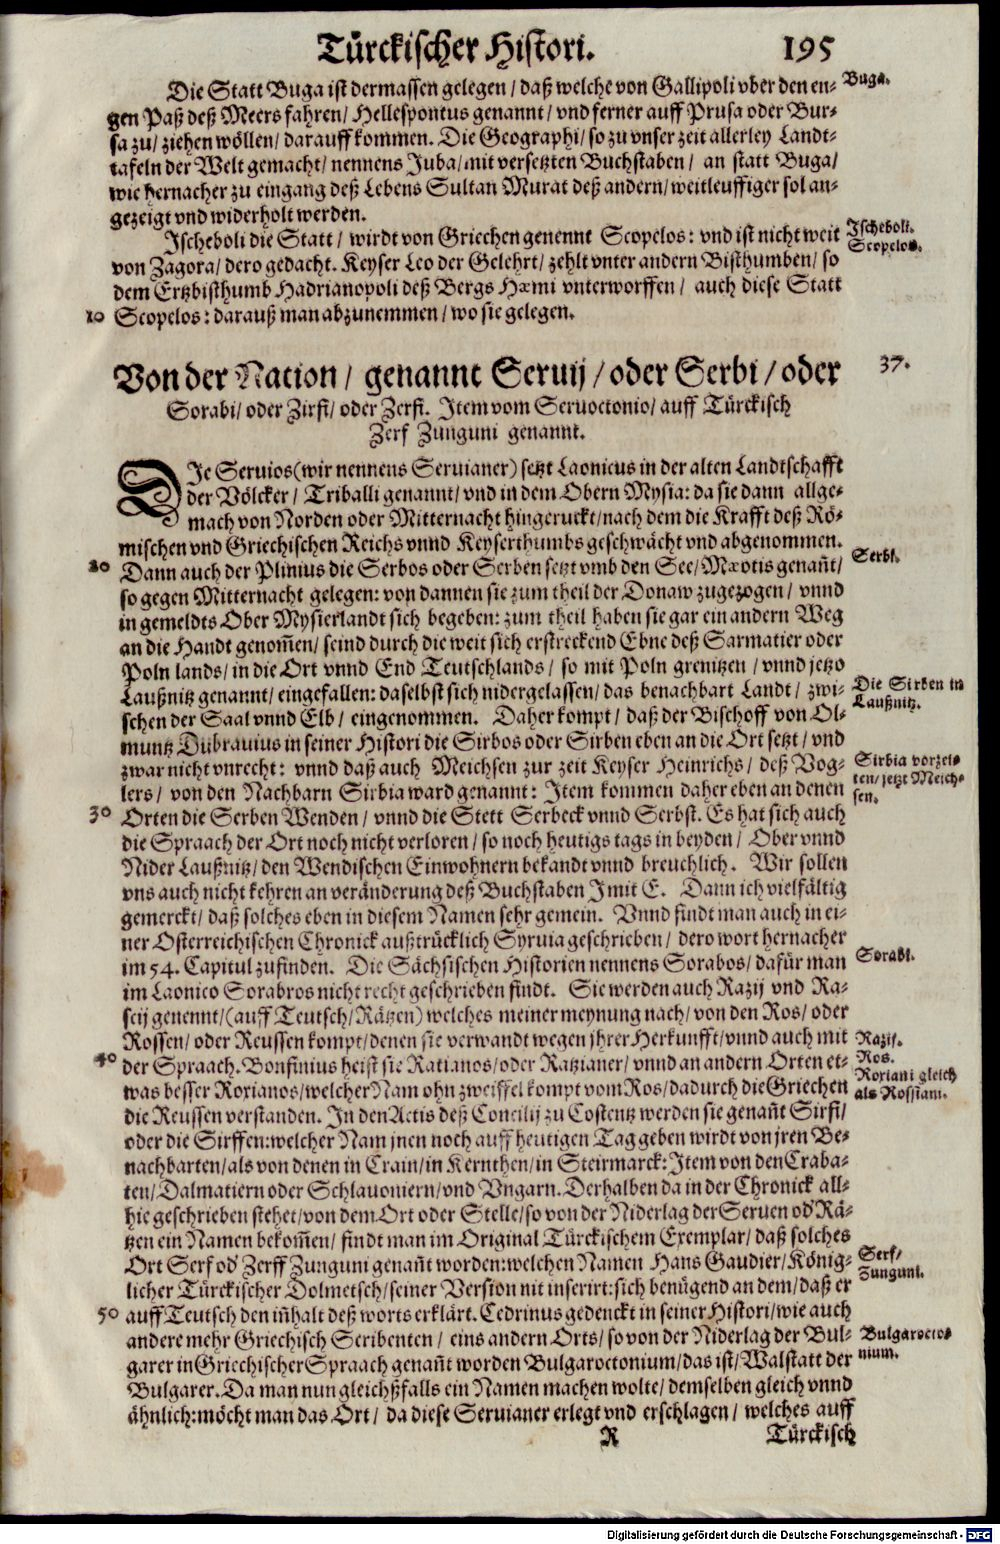 Türckischer Histori. 195
Die Statt Buga ist dermassen gelegen / daß welche von Gallipoli vber den en-
Buga.
gen Paß deß Meers fahren / Hellespontus genannt / vnd ferner auff Prusa oder Bur-
sa zu / ziehen wöllen / darauff kommen. Die Geographi / so zu vnser zeit allerley Landt-
tafeln der Welt gemacht / nennens Juba / mit versetzten Buchstaben / an statt Buga /
wie hernacher zu eingang deß Lebens Sultan Murat deß andern / weitleuffiger sol an-
gezeigt vnd widerholt werden.
Ischeboli die Statt / wirdt von Griechen genennt Scopelos: vnd ist nicht weit
Ischeboli.
Scopelos.
von Zagora / dero gedacht. Keyser Leo der Gelehrt / zehlt vnter andern Bisthumben / so
dem Ertzbisthumb Hadrianopoli deß Bergs Hæmi vnterworffen / auch diese Statt
10 Scopelos: darauß man abzunemmen / wo sie gelegen.
Von der Nation / genannt Seruij / oder Serbi / oder
37.
Sorabi / oder Zirfi / oder Zerfi. Item vom Seruoctonio / auff Türckisch
Zerf Zunguni genannt.
DIe Seruios (wir nennens Seruianer) setzt Laonicus in der alten Landtschafft
der Völcker / Triballi genannt / vnd in dem Obern Mysia: da sie dann allge-
mach von Norden oder Mitternacht hingeruckt / nach dem die Krafft deß Rö-
mischen vnd Griechischen Reichs vnnd Keyserthumbs geschwächt vnd abgenommen.
20 Dann auch der Plinius die Serbos oder Serben setzt vmb den See / Mæotis genañt /
Serbi.
so gegen Mitternacht gelegen: von dannen sie zum theil der Donaw zugezogen / vnnd
in gemeldts Ober Mysierlandt sich begeben: zum theil haben sie gar ein andern Weg
an die Handt genom̃en / seind durch die weit sich erstreckend Ebne deß Sarmatier oder
Poln lands / in die Ort vnnd End Teutschlands / so mit Poln grenitzen / vnnd jetzo
Laußnitz genannt / eingefallen: daselbst sich nidergelassen / das benachbart Landt / zwi-
Die Sirben in
Laußnitz.
schen der Saal vnnd Elb / eingenommen. Daher kompt / daß der Bischoff von Ol-
muntz Dubrauius in seiner Histori die Sirbos oder Sirben eben an die Ort setzt / vnd
zwar nicht vnrecht: vnnd daß auch Meichsen zur zeit Keyser Heinrichs / deß Vog-
Sirbia vorzei-
ten / jetzt Meich-
sen.
lers / von den Nachbarn Sirbia ward genannt: Item kommen daher eben an denen
30 Orten die Serben Wenden / vnnd die Stett Serbeck vnnd Serbst. Es hat sich auch
die Spraach der Ort noch nicht verloren / so noch heutigs tags in beyden / Ober vnnd
Nider Laußnitz / den Wendischen Einwohnern bekandt vnnd breuchlich. Wir sollen
vns auch nicht kehren an veränderung deß Buchstaben I mit E. Dann ich vielfältig
gemerckt / daß solches eben in diesem Namen sehr gemein. Vnnd findt man auch in ei-
ner Osterreichischen Chronick außtrücklich Syruia geschrieben / dero wort hernacher
im 54. Capitul zufinden. Die Sächsischen Historien nennens Sorabos / dafür man
Sorabi.
im Laonico Sorabros nicht recht geschrieben findt. Sie werden auch Razij vnd Ra-
scij genennt / (auff Teutsch / Rätzen) welches meiner meynung nach / von den Ros / oder
Rossen / oder Reussen kompt / denen sie verwandt wegen jhrer Herkunfft / vnnd auch mit
Razij.
40 der Spraach. Bonfinius heist sie Ratianos / oder Ratzianer / vnnd an andern Orten et-
Ros.
Roxiani gleich
als Rossiani.
was besser Roxianos / welcher Nam ohn zweiffel kompt vom Ros / dadurch die Griechen
die Reussen verstanden. In den Actis deß Concilij zu Costentz werden sie genañt Sirfi /
oder die Sirffen: welcher Nam jnen noch auff heutigen Tag geben wirdt von jren Be-
nachbarten / als von denen in Crain / in Kernthen / in Steirmarck: Item von den Craba-
ten / Dalmatiern oder Schlauoniern / vnd Vngarn. Derhalben da in der Chronick all-
hie geschrieben stehet / von dem Ort oder Stelle / so von der Niderlag der Seruen od' Rä-
tzen ein Namen bekom̃en / findt man im Original Türckischem Exemplar / daß solches
Ort Serf od' Zerff Zunguni genañt worden: welchen Namen Hans Gaudier / König-
Serf /
Zunguni.
licher Türckischer Dolmetsch / seiner Version nit inserirt: sich benügend an dem / daß er
50 auff Teutsch den iñhalt deß worts erklärt. Cedrinus gedenckt in seiner Histori / wie auch
andere mehr Griechisch Scribenten / eins andern Orts / so von der Niderlag der Bul-
Bulgarocto-
nium.
garer in Griechischer Spraach genañt worden Bulgaroctonium / das ist / Walstatt der
Bulgarer. Da man nun gleichßfalls ein Namen machen wolte / demselben gleich vnnd
ähnlich: möcht man das Ort / da diese Seruianer erlegt vnd erschlagen / welches auff
R Türckisch
Digitalisierung gefördert durch die Deutsche Forschungsgemeinschaft - DFG